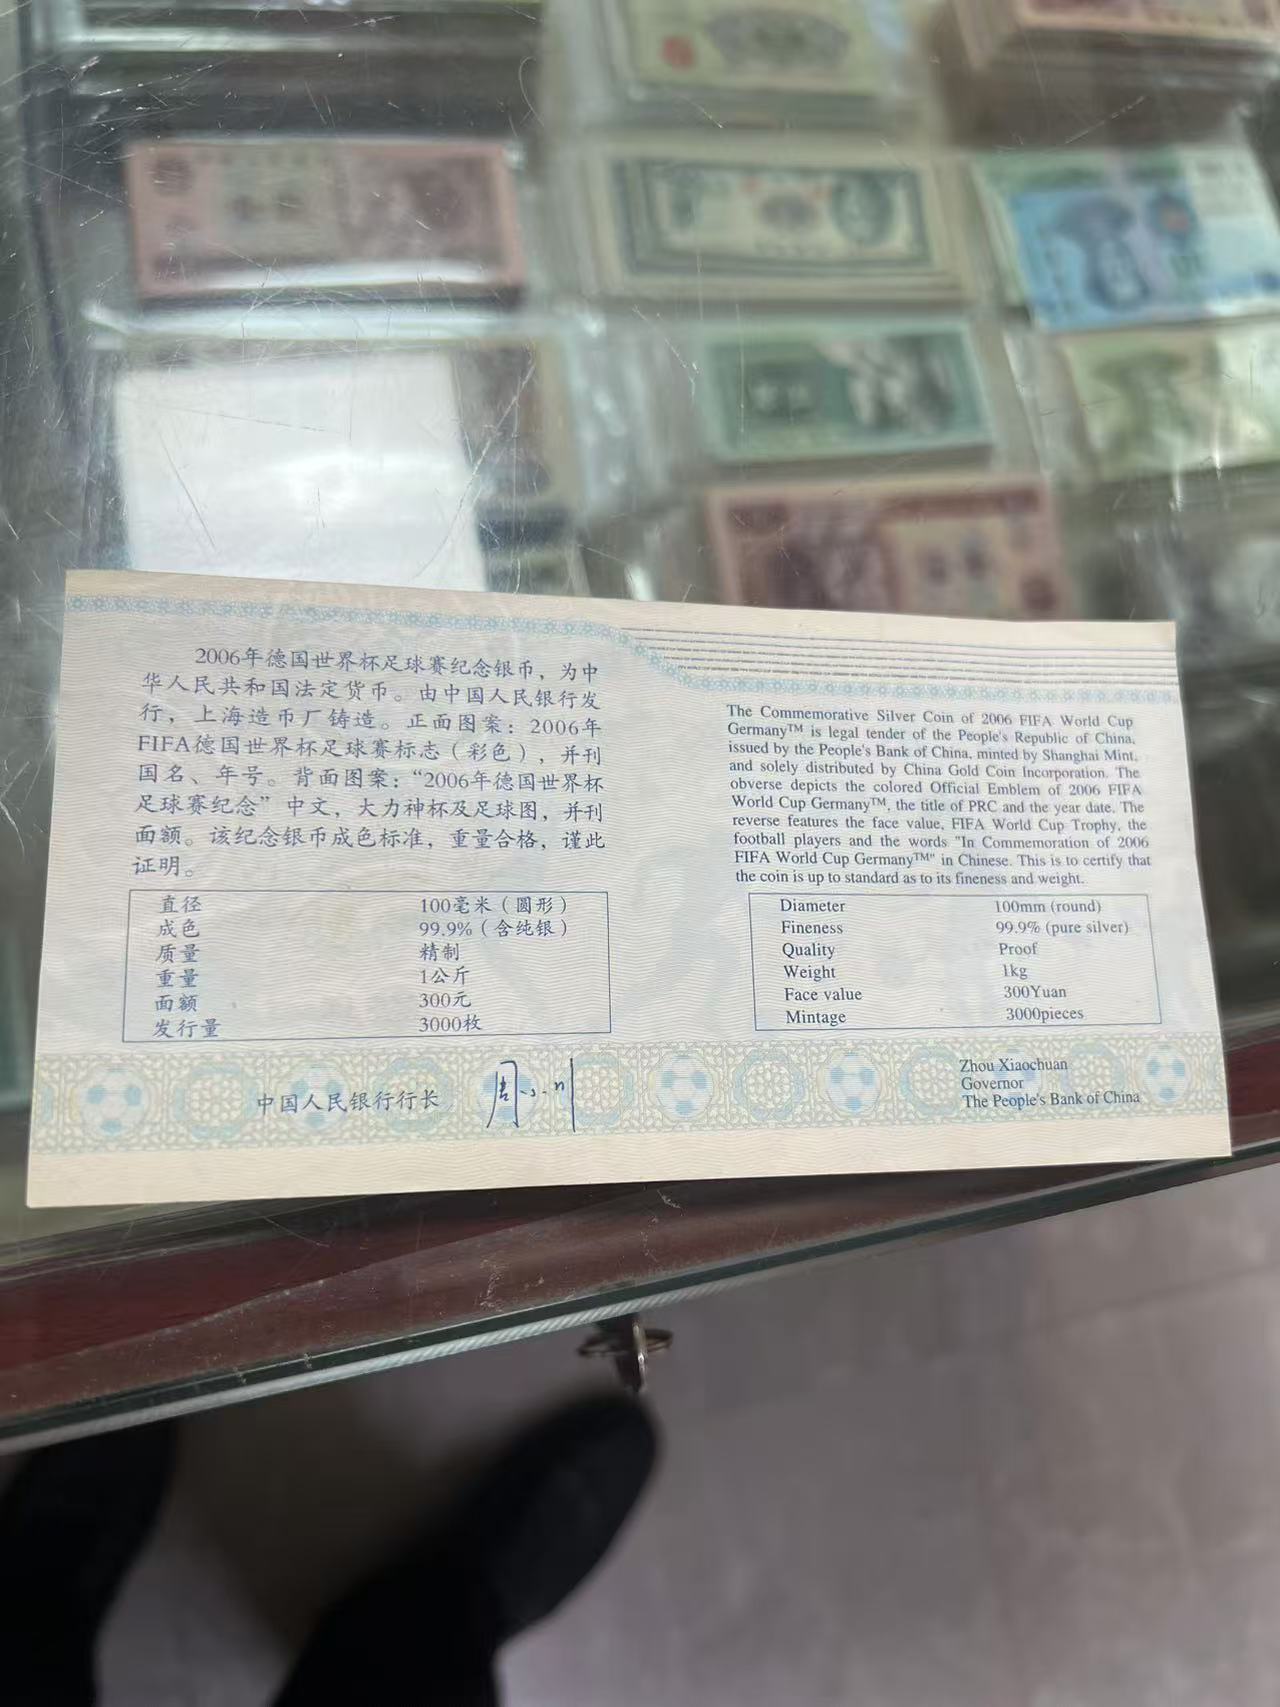 2006年德国世界杯足球赛纪念银币，为中
华人民共和国法定货币。由中国人民银行发
行，上海造币厂铸造。正面图案：2006年
FIFA德国世界杯足球赛标志（彩色），并刊
国名、年号。背面图案：“2006年德国世界杯
足球赛纪念”中文，大力神杯及足球图，并刊
面额。该纪念银币成色标准，重量合格，谨此
证明。
直径 100毫米（圆形）
成色 99.9%（含纯银）
质量 精制
重量 1公斤
面额 300元
发行量 3000枚
中国人民银行行长 周小川
The Commemorative Silver Coin of 2006 FIFA World Cup
Germany™ is legal tender of the People's Republic of China,
issued by the People's Bank of China, minted by Shanghai Mint,
and solely distributed by China Gold Coin Incorporation. The
obverse depicts the colored Official Emblem of 2006 FIFA
World Cup Germany™, the title of PRC and the year date. The
reverse features the face value, FIFA World Cup Trophy, the
football players and the words "In Commemoration of 2006
FIFA World Cup Germany™" in Chinese. This is to certify that
the coin is up to standard as to its fineness and weight.
Diameter 100mm (round)
Fineness 99.9% (pure silver)
Quality Proof
Weight 1kg
Face value 300Yuan
Mintage 3000pieces
Zhou Xiaochuan
Governor
The People's Bank of China